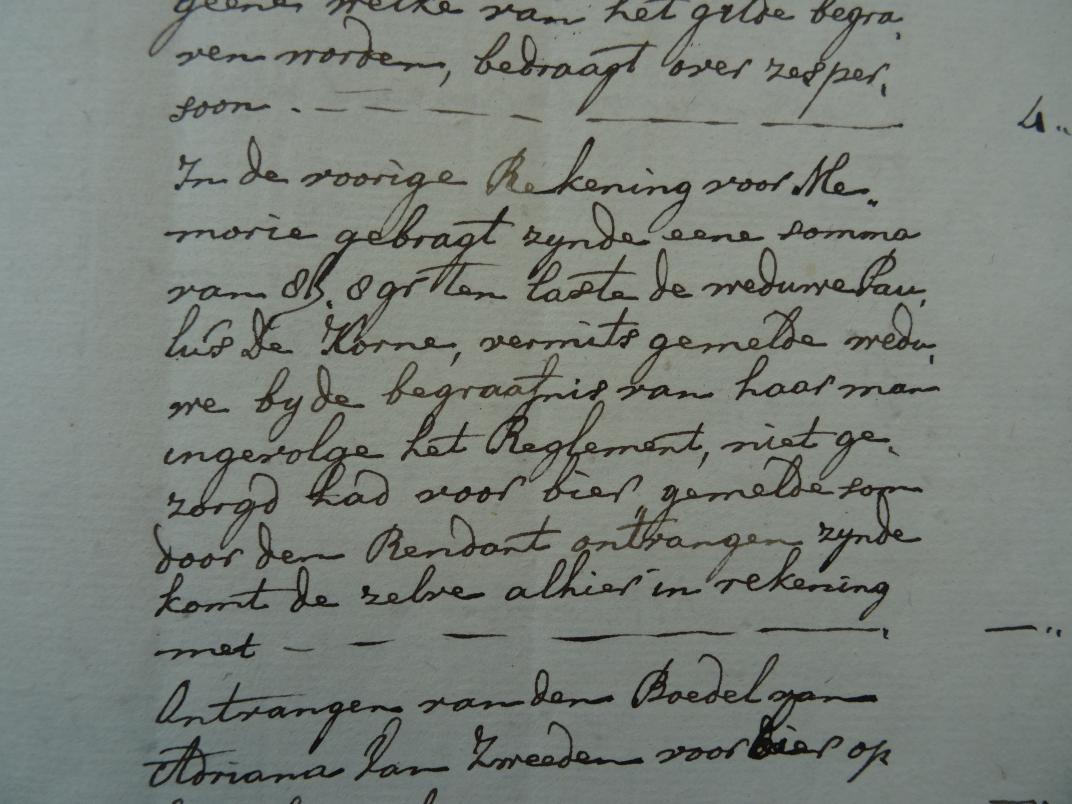 geene welke van het gilde begra„
ven worden, bedraagt over zes per„
soon . — — — — — — 4„
In de voorige Rekening voor Me„
morie gebragt zynde eene somma
van 8ß. 8 grten laste de weduwe Pau„
lus De Korne, vermits gemelde wedu„
we by de begraafnis van haar man
ingevolge het Reglement, niet ge„
zorgd had voor bier, gemelde som
door den Rendant ontvangen zynde
komt de zelve alhier in rekening
met — — — — — — „
Ontvangen van den Boedel van
Adriana Van Zweeden voor bier op